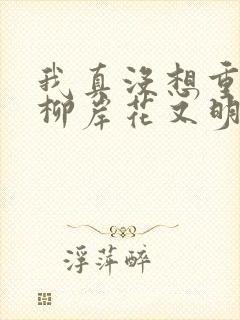 我真没想重
柳岸花又明
浮萍醉